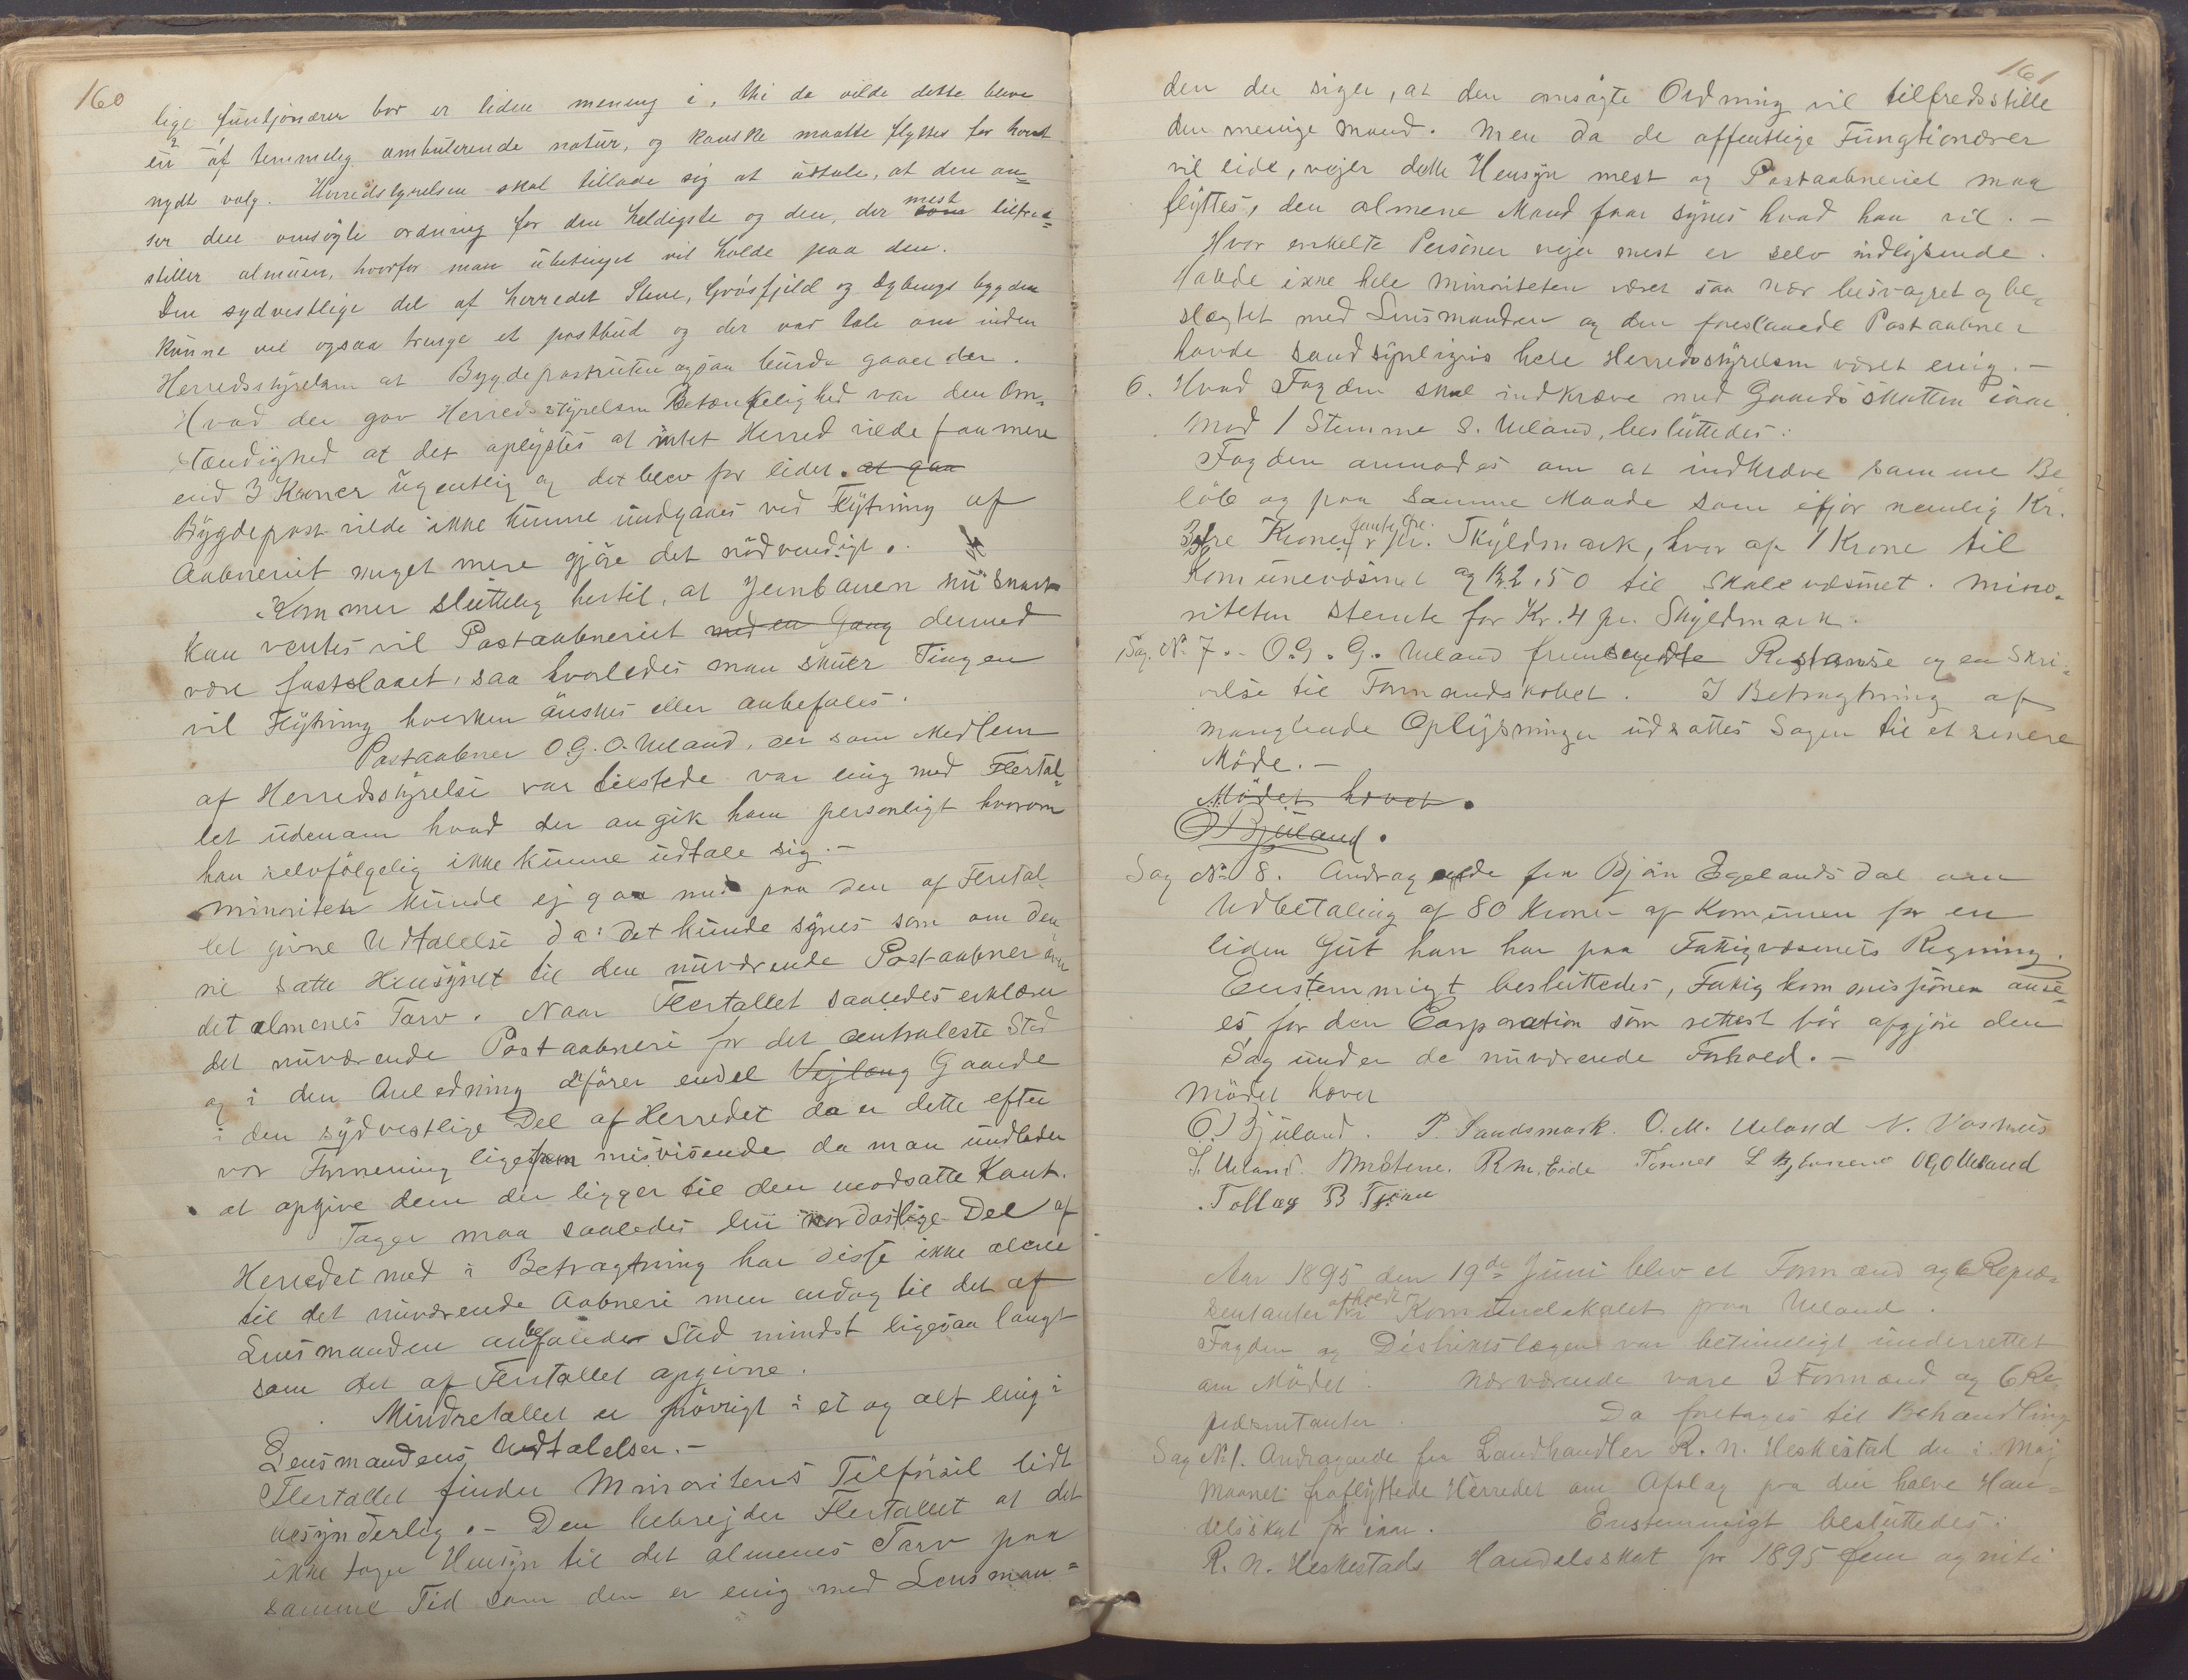 160
lige funtjonærer bor er liden mening i, thi da vilde dette bleve
en af temmelig ambulerende natur, og kanske maatte flyttes for hvert
nydt valg. Herredstyrelsen skal tillade sig at udtale, at den an=
ser den omsøgte ordning for den heldigste og den, der mest som tilfreds=
stiller almuen, hvorfor man ubetinget vil holde paa den.
Den sydvestlige del af herredet Stene, Grøsfjeld og bygden
kunne vel ogsaa trenge et postbud og der var tale om inden
Herredsstyrelsen at Bygdepostruten ogsaa burde gaaet der.
Hvad der gav Herredsstyrelsen Betænkelighed var den Om=
stændighed at det oplystes at intet Herred vilde faa mere
end 3 Kroner ugentlig og det blev for lidet. at gaa
Bygdepost vilde ikke kunne undgaaes ved Flytning af
Aabneriet nuget mere gjøre det nødvendigt.
Kommer sluttelig hertil, at Jernbanen nu snart
kan ventes vil Postaabneriet med en Gang dermed
være fastslaaet, saa hvorledes man snuer Tingen
vil Flytning hverken ønskes eller anbefales.
Postaabner O.G.O. Ueland, der som Medlem
af Herredsstyrelse var tilstede var enig med Flertal=
let udenom hvad der angik ham personligt hvorom
han selvfølgelig ikke kunne udtale sig. –
Minoriteten kunde ej gaa med paa den af Flertal
let givne Udtalelse da: det kunde synes som om den
vil satte Hensynet til den nuværende Postaabner over
det almenes Tarv. Naar Flertallet saaledes erklærer
det nuværende Postaabneri for det centraleste Sted
og i den Anledning anfører endel Vejlang Gaarde
i den sydvestlige Del af Herredet da er dette efter
vor Formening ligefrem misvisende da man undlader
at opgive dem der ligger til den modsatte Kant.
Tager maa saaledes hin nordøstlige Del af
Herredet med i Betragtning har disse ikke alene
til det nuværende Aabneri men endog til det af
Lensmanden anbefalede Sted mindst ligesaa langt
som det af Flertallet opgivne.
Mindretallet er forøvrigt i et og alt enig i
Lensmandens Udtalelser. –
Flertallet finder Minoritens Tilførsil lidt
besynderlig. – Den bebrejder Flertallet at det
ikke tager Hensyn til det almenes Tarv paa
samme Tid som den er enig med Lensman=
161
den der siger, at den omsøgte Ordning vil tilfredsstille
den menige Mand. Men da de offentlige Fungtionærer
vil lide, vejer dette Hensyn mest og Postaabneriet maa
flyttes, den almene Mand faar synes hvad han vil. –
Hvor enkelte Personer vejer mest er selv indlysende.
Havde ikke hele Minoriteten været saa nær besvogret og be=
slægtet med Lensmanden og den foreslaaede Postaabner
havde sandsynligvis hele Herredsstyrelsen været enig. –
6. Hvad Fogden skal indkræve med Gaardsskatten iaar
Mod 1 Stemme S. Ueland, besluttedes:
Fogden anmodes om at indkræve samme Be
løb og paa samme Maade som ifjor nemlig Kr.
3,50 tre Kroner femti Øre pr. Skyldmark, hvor af 1 Krone til
Komunevæsenet og Kr 2,50 til Skolevæsenet. Mino=
riteten stemte for Kr. 4 pr. Skyldmark.
Sag. № 7. – O.G. G. Ueland fremsendte Restanse og en Skri=
velse til Formandskabet. I Betragtning af
manglende Oplysninger udsattes Sagen til et senere
Møde. –
Mødet hævet.
O Bjuland.
Sag № 8. Andragende fra Bjørn Egelandsdal om
Udbetaling af 80 Kroner af Komunen for en
liden Gut han har paa Fattigvæsenets Regning.
Enstemmigt besluttedes, Fattigkommissjonen anse=
es for den Corporation som rettest bør afgjøre den
Sag under de nuværende Forhold. –
Mødet hævet
O. Bjuland. P. Sandsmark. O. M. Ueland N. Vashus
S. Ueland. R M. Eide Tonnes L OGO Ueland
Tollag B Tjørn
Aar 1895 den 19de Juni blev et Formænd og 6 Repræ=
sentanter afholdt i Komunelokalet paa Ueland.
Fogden og Distriktslægen var betimeligt underrettet
om Mødet. Nærværende vare 3 Formænd og 6 Re=
præsentanter. Da foretages til Behandling
Sag № 1. Andragende fra Landhandler R. N. Heskestad der i Maj
Maaned fraflyttede Herredet om Afslag paa den halve Han=
delsskat for iaar. Enstemmigt besluttedes:
R. N. Heskestads Handelsskat for 1895 fem og niti